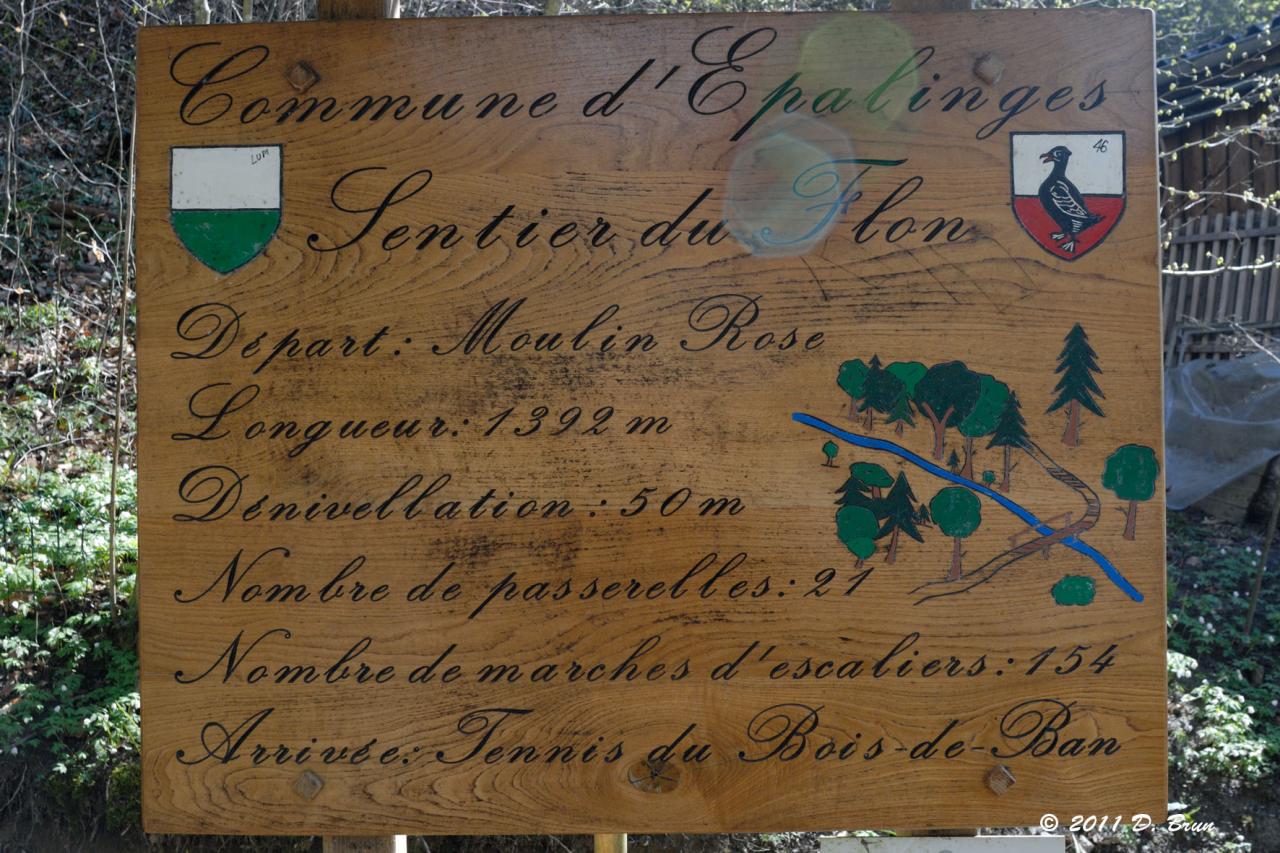 Commune d'Epalinges
LUM
46
Sentier du Flon
Départ: Moulin Rose
Longueur: 1392 m
Dénivellation: 50 m
Nombre de passerelles: 21
Nombre de marches d'escaliers: 154
Arrivée: Tennis du Bois-de-Ban
© 2011 D. Brun